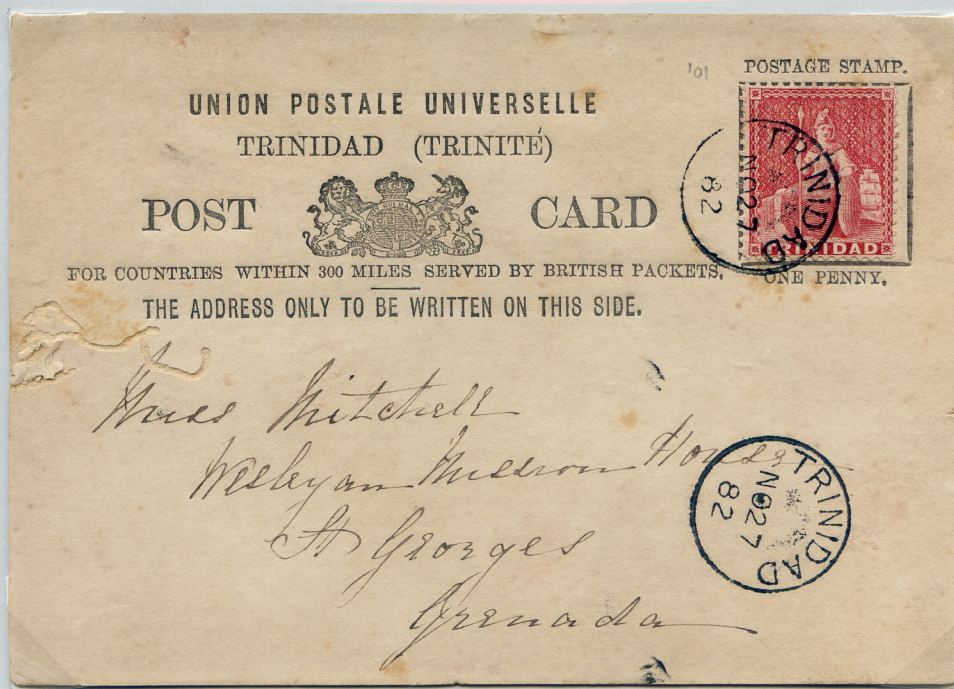 101
POSTAGE STAMP.
UNION POSTALE UNIVERSELLE
TRINIDAD (TRINITÉ)
POST CARD
TRINIDAD
NO 27
82
TRINIDAD
FOR COUNTRIES WITHIN 300 MILES SERVED BY BRITISH PACKETS.
ONE PENNY.
THE ADDRESS ONLY TO BE WRITTEN ON THIS SIDE.
Miss Mitchell
Wesleyan Mission House
St Georges
Grenada
TRINIDAD
NO 27
82